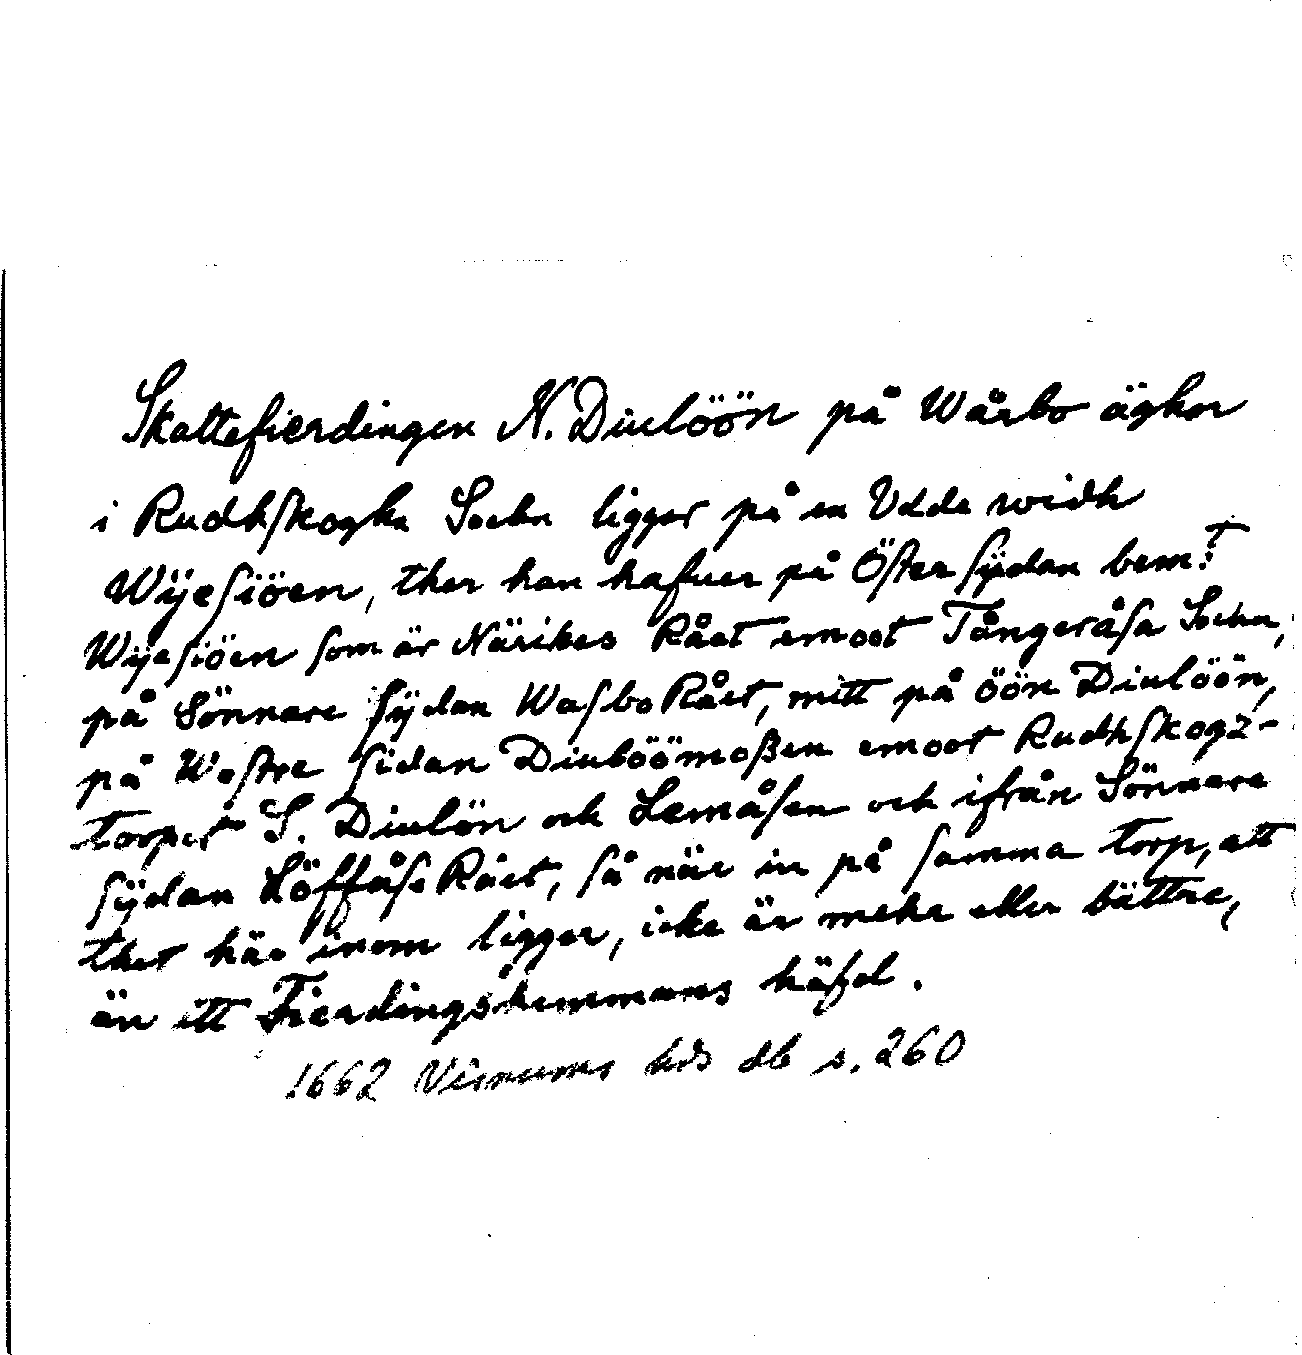 Skattefierdingen N. Diulöön på Wårbo äghor
i Rudhskogha Sochn ligger på en Udde widh
Wÿesiöen, ther han hafuer på Öster sÿdan bem:t
Wÿesiöen som är Närikes Rået emoot Tångeråsa Sochn,
på Sönnare sÿdan Wasbo Rået, mitt på öön Diulöön,
på Wästre sidan Diulöömoßen emoot Rudhskogz-
torpet S. Diulön och Lemåsen och ifrån Sönnare
sÿdan Löffåse Rået, så när in på samma torp, att
thet här inom ligger, icke är mehr eller bättre,
än itt Fierdingshemmans häfd.
1662 Visnums hds db s. 260